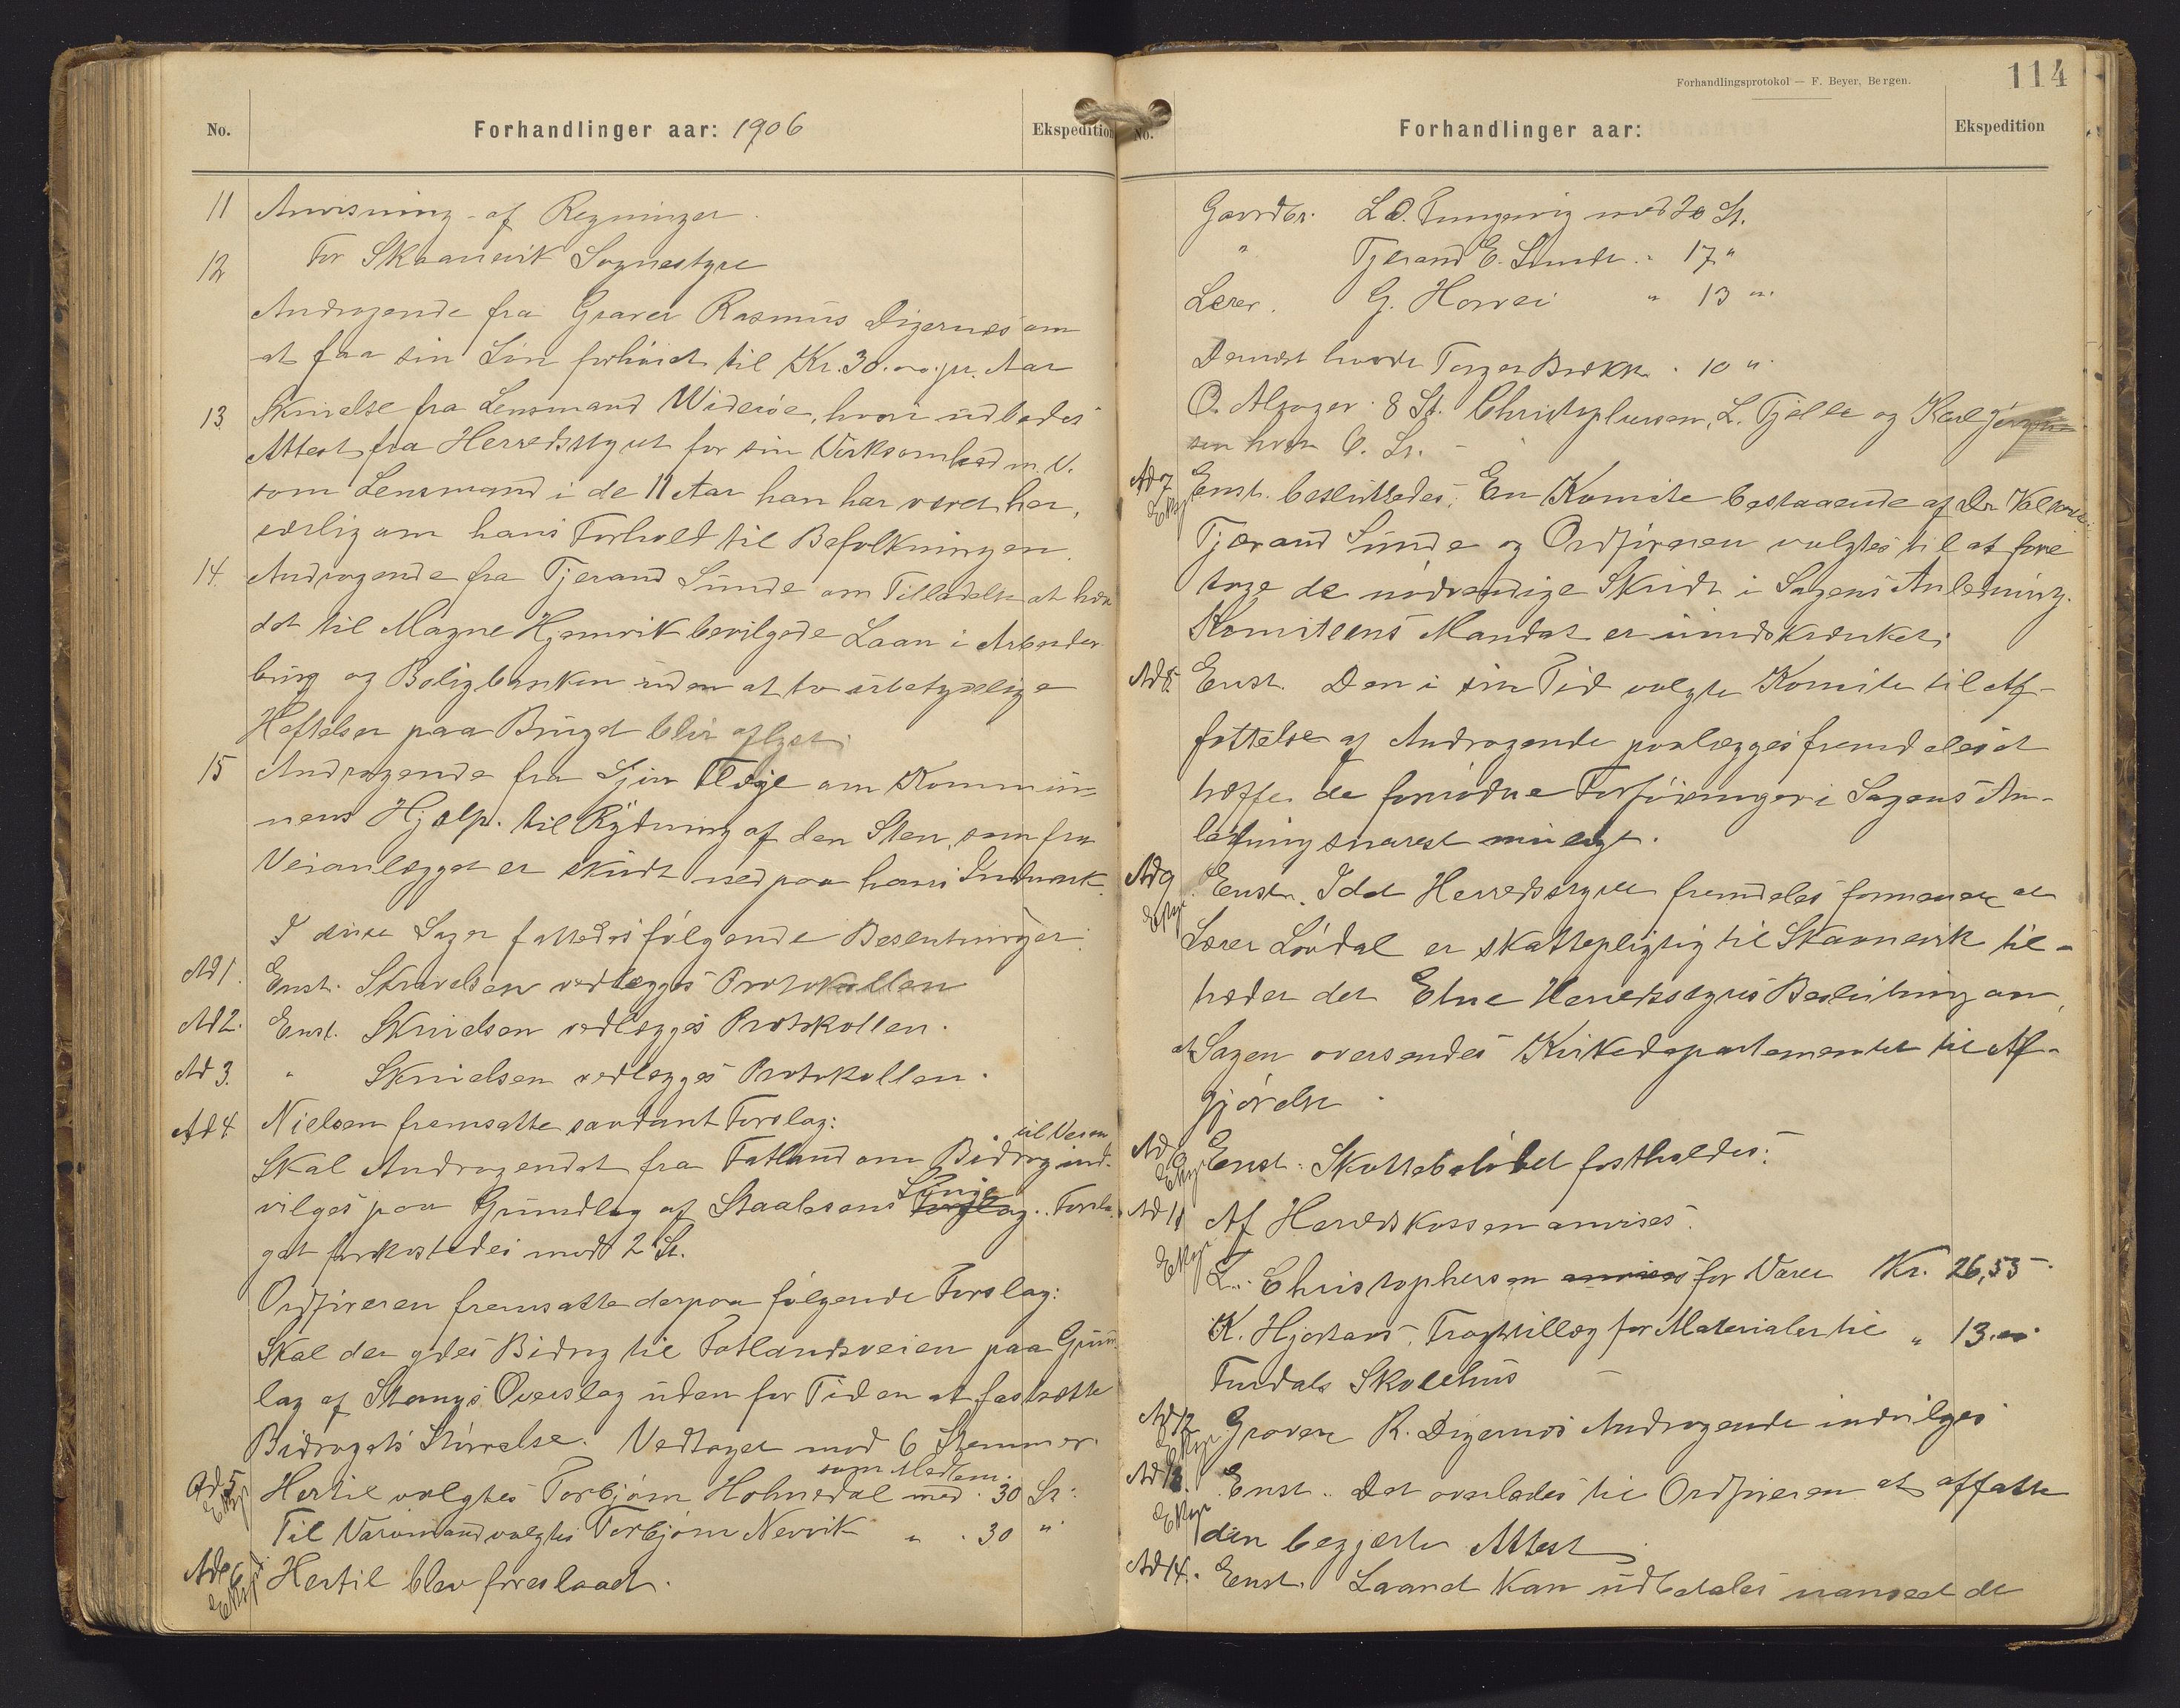 No.
Forhandlinger aar: 1906
Ekspedition
11 Anvisning af Regninger.
12 For Skaanevik Sognestyre
Andragende fra Graver Rasmus Digernes om
at faa sin Løn forhøiet til Kr. 30.00 pr. Aar
13 Skrivelse fra Lensmand Widerøe, hvori udbedes
Attest fra Herredsstyret for sin Virksomhed m. V.
som Lensmand i de 11 Aar han har været her,
særlig om hans Forhold til Befolkningen.
14. Andragende fra Tjerand Sunde om Tilladelse at hæve
det til Magne Hjemvik bevilgede Laan i Arbeider
brug og Boligbanken uden at to ubetydelige
Heftelser paa Bruget blir aflyst.
15 Andragende fra Sjur Fløge om Kommu-
nens Hjælp til Rydning af den Sten, som fra
Veianlægget er skudt ned paa hans Indmark.
I disse Sager fattedes følgende Beslutninger:
Ad 1. Enst. Skrivelsen vedlægges Protokollen
Ad 2. Enst. Skrivelsen vedlægges Protokollen.
Ad 3. " Skrivelsen vedlægges Protokollen.
Ad 4 Nielsen fremsatte saadant Forslag:
Skal Andragendet fra Fatland om Bidrag til Veien ind-
vilges paa Grundlag af Staalesens Forslag Linje. Forsla-
get forkastedes mod 2 St.
Ordføreren fremsatte derpaa følgende Forslag:
Skal der ydes Bidrag til Fatlandsveien paa Grund-
lag af Stangs Overslag uden for Tiden at fastsætte
Bidragets Størrelse. Vedtaget mod 6 Stemmer.
Ad 5 Eksp Hertil valgtes Torbjørn Holmedal som Medlem med 30 St.
Til Varamand valgtes Torbjørn Nervik " 30 "
Ad 6 Eksp Hertil blev foreslaaet.
Forhandlingsprotokol — F. Beyer, Bergen.
114
No.
Forhandlinger aar:
Ekspedition
Gaardbr. L. O. Tungesvig med 20 St.
" Tjerand E. Sunde " 17 "
Lærer. G. Horvei " 13 "
Dernæst havde Torger Brekke 10 "
O. Alsager 8 St. Christophersen, L. Fjelle og Karl Jørgen-
sen hver 6. St.
Ad 7 Eksp Enst. besluttedes: En Komite bestaaende af Dr.
Tjerand Sunde og Ordføreren valgtes til at fore
tage de nødvendige Skridt i Sagens Anledning.
Komiteens Mandat er uindskrænket.
Ad 8 Enst. Den i sin Tid valgte Komite til Af-
fattelse af Andragende paalægges fremdeles at
træffe de fornødne Forføininger i Sagens An-
ledning snarest muligt.
Ad 9 Eksp Enst. Idet Herredsstyret fremdeles formener at
Lærer Løvdal er skattepligtig til Skaanevik til-
træder det Etne Herredsstyres Beslutning om,
at Sagen oversendes Kirkedepartementet til Af-
gjørelse.
Ad Eksp Enst. Skattebeløbet fastholdes.
Ad 11 Af Herredskassen anvises.
Eksp L. Christophersen anvises for Varer Kr. 26,55
K. Hjortaas, Fragttillæg for Materialer til " 13.00
Furdals Skolehus
Ad 12 Eksp Graver R. Digernes Andragende indvilges
Ad 13. Eksp Enst. Det overlades til Ordføreren at affatte
den begjærte Attest
Ad 14. Enst. Laanet kan udbetales uanseet de